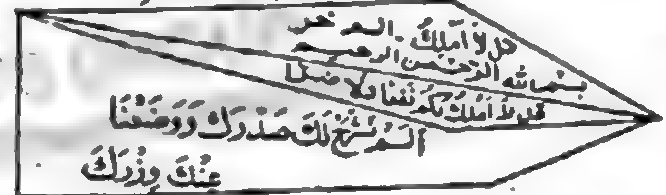 قل لا أملك
بسم الله الرحمن الرحيم
قل لا أملك لكم نفعا ولا ضرا
ألم نشرح لك صدرك ووضعنا
عنك وزرك